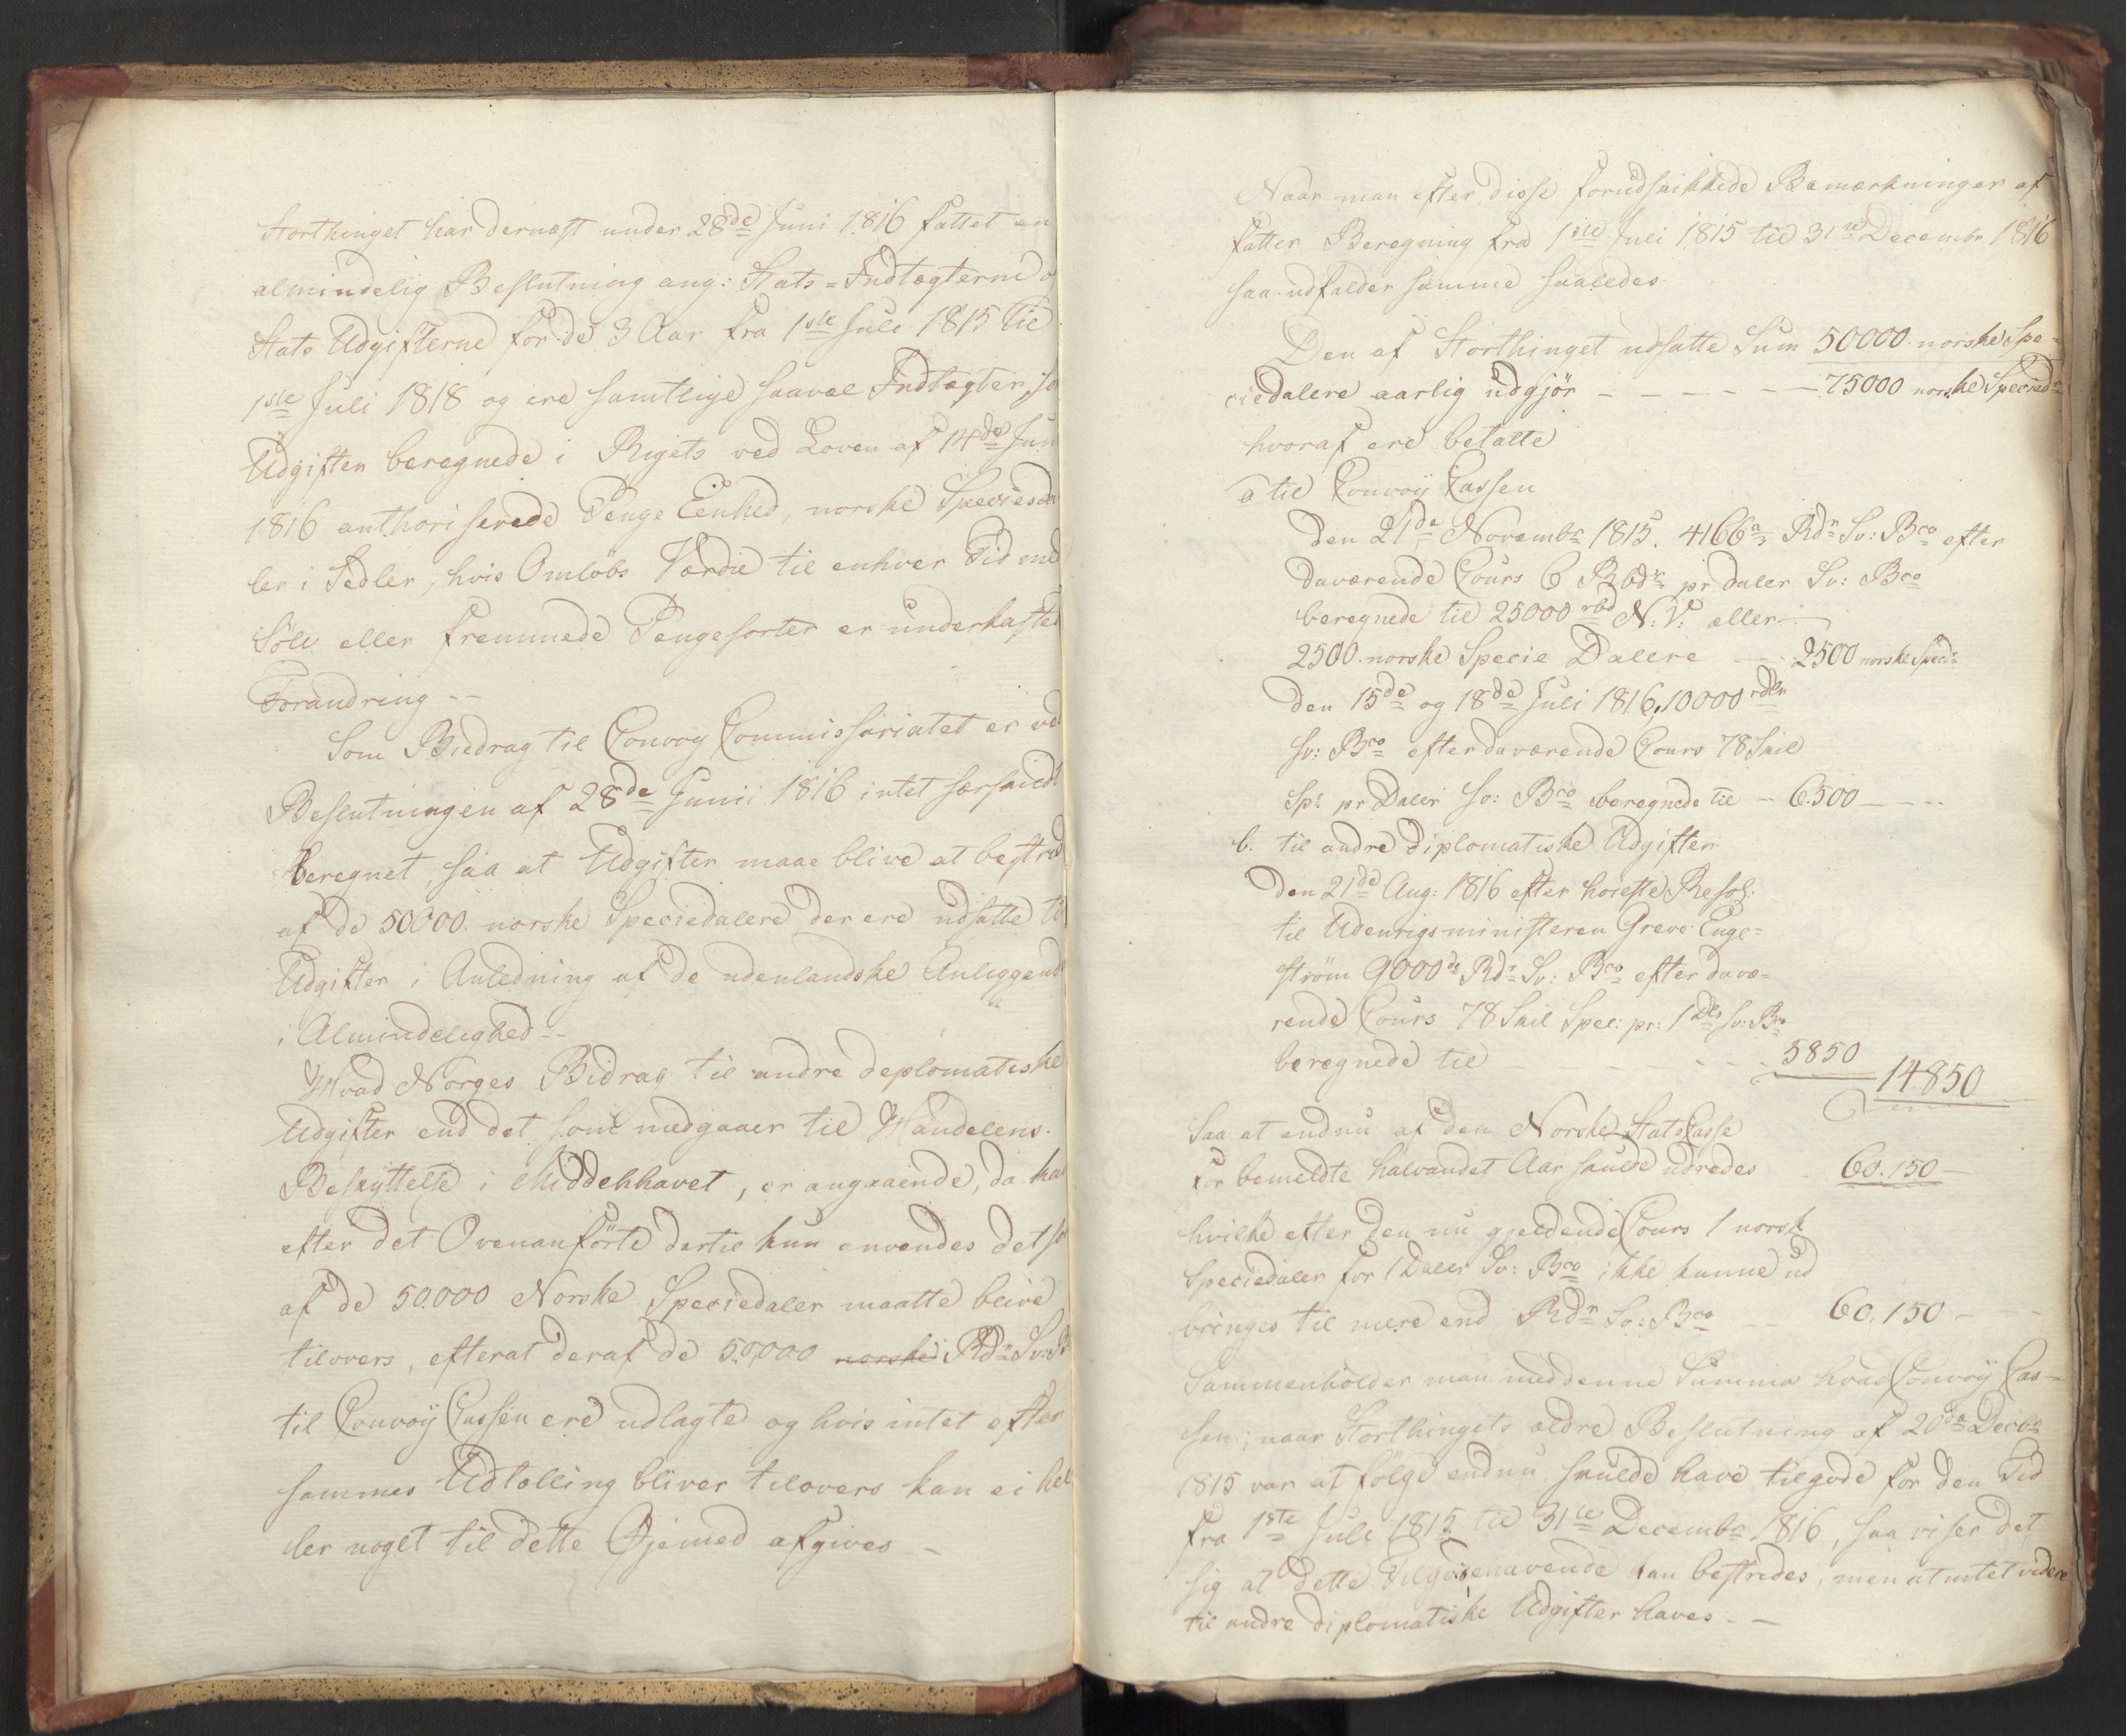 Storthinget har dernæst under 28de Juni 1816 fattet en
almindelig Beslutning ang: Stats-Indtægterne o
Stats Udgifterne for de 3 Aar fra 1ste Juli 1815 til
1ste Juli 1818 og ere samtlige saavel Indtægter, so
Udgifter beregnede i Rigets ved Loven af 14de Jun
1816 authoriserede Penge Eenhed, norske Speciesda
ler i Sedler, hvis Omløbs Værdie til enhver Tid med
Sölv eller fremmede Pengesorter er underkasted
Forandring --
Som Biedrag til Convoy Commissariatet er ved
Beslutningen af 28de Junii 1816 intet særskildt
beregnet, saa at Udgifter maae blive at bestred
af de 50000. norske Speciedalere der ere udsatte til
Udgifter i Anledning af de udenlandske Anliggend
i Almindelighed --
Hvad Norges Bidrag til andre deplomatiske
Udgifter end det som medgaaer til Handelens
Beskyttelse i Middelhavet, er angaaende, da kan
efter det Ovenanförte dertil kun anvendes det so
af de 50.000 Norske Speciedaler maatte blive
tilovers, efterat deraf de 50,000 norske Rdr Sv: B
til Convoÿ Cassen ere udlagte og hvis intet efter
sammes Udtælling bliver tilovers kan ei hel
ler noget til dette Øjemed afgives --
Naar man efter disse forudskikkede Bemærkninger af
fatter Beregning fra 1ste Juli 1815 til 31te Decembr 1816
saa udfalder samme saaledes
Den af Storthinget udsatte Sum 50000. norske Spe-
ciedalere aarlig udgjör - - - - - 75000 norske Speciedr
hvoraf ere betalte
a til Convoy Cassen
Den 21de Novembr 1815. 4166 Rdr Sv: Bco efter
daværende Cours 6 Rbdr pr daler Sv: Bco
beregnede til 25000 rbd N. V. eller
2500. norske Specie Dalere - 2500 norske Specdr
Den 15de og 18de Juli 1816, 10000 rdlr
Sv: Bco efter daværende Cours 78 Skil
Sps pr Daler Sv: Bco beregnede til - 6.500 - - -
b. til andre diplomatiske Udgifter
Den 21de Aug: 1816 efter høieste Resol:
til Udenrigsministeren Greve Enge-
ström 9000 de Rdr Sv: Bco efter davæ-
rende Cours 78 Skil Spec: pr: 1 Dlr Sv: Bco
beregnede til - - - - - 5850
14850
Saa at endnu af den Norske Stats Casse
for bemeldte halvandet Aar skulde udredes 60.150 -
hvilke efter den nu gjældende Cours 1 norsk
Speciedaler for 1 Daler Sv: Bco ikke kunne ud
bringes til mere end Rdr Sv: Bco -- 60.150 -
Sammenholder man med denne Summa hvad Convoÿ Cas-
sen, naar Storthingets ældre Beslutning af 20de Decbr
1815 var at fölge endnu skulde have tilgode for den Tid
fra 1ste Juli 1815 til 31te Decembr 1816, saa viser det
sig at dette Tilgodehavende kan bestredes, men at intet videre
til andre diplomatiske Udgifter haves --